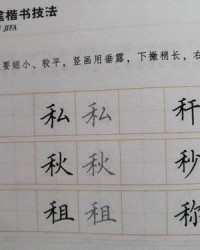 笔楷书技法
JIFA
要短小、较平，竖画用垂露，下撇稍长，右
私 私 秆
秋 秋 秒
租 租 称